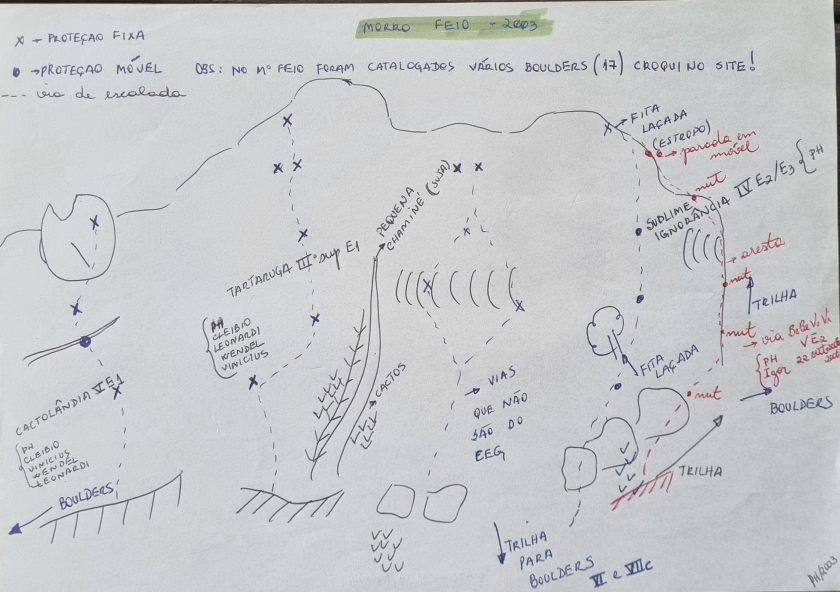 MORRO FEIO - 2003
X → PROTEÇÃO FIXA
● → PROTEÇÃO MÓVEL
OBS: NO Mº FEIO FORAM CATALOGADOS VÁRIOS BOULDERS (17) CROQUI NO SITE!
--- via de escalada
CACTOLÂNDIA V E1
PH
CLEIBIO
VINICIUS
WENDEL
LEONARDI
BOULDERS
TARTARUGA IIIº sup E1
PH
CLEIBIO
LEONARDI
WENDEL
VINICIUS
PEQUENA
CHAMINÉ (SUJA)
CACTOS
→ VIAS
QUE NÃO
SÃO DO
CEG
TRILHA
PARA
BOULDERS
VI e VIIc
FITA
LAÇADA
(ESTROPO)
→ parada em
móvel
nut
SUBLIME
IGNORÂNCIA IV E2/E3 { PH
→ aresta
nut
TRILHA
nut
→ via
PH V E2
Igor 22
nut
BOULDERS
FITA
LAÇADA
TRILHA
PH/2003